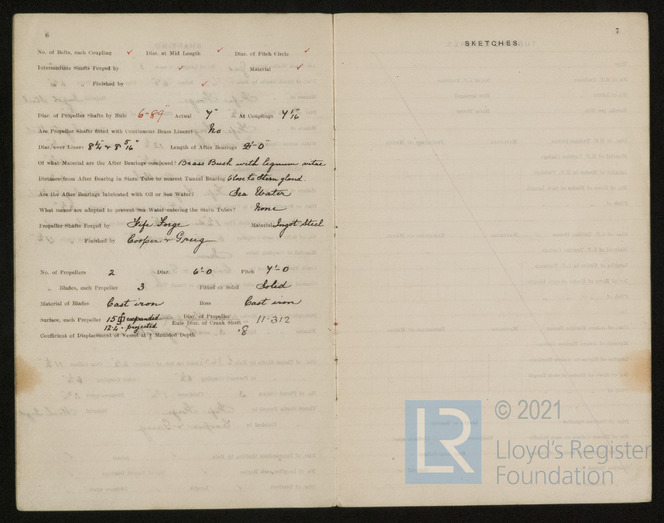 6
No. of Bolts, each Coupling ✓ Diar. at Mid Length ✓ Diar. of Pitch Circle ✓
Intermediate Shafts Forged by ✓ Material ✓
Finished by ✓
Diar. of Propeller Shafts by Rule 6.89" Actual 7" At Couplings 7 1/16
Are Propeller Shafts fitted with Continuous Brass Liners? No
Diar. over Liners 8 1/4 & 8 5/16" Length of After Bearings 2'-0"
Of what Material are the After Bearings composed? Brass Bush with lignum vitae
Distance from After Bearing in Stern Tube to nearest Tunnel Bearing Close to Stern gland
Are the After Bearings lubricated with Oil or Sea Water? Sea Water
What means are adopted to prevent Sea Water entering the Stern Tubes? None
Propeller Shafts Forged by Fife Forge Material Ingot Steel
Finished by Cooper & Greig
No. of Propellers 2 Diar. 6'-0 Pitch 7'-0
" Blades, each Propeller 3 Fitted or Solid Solid
Material of Blades Cast iron Boss Cast iron
Surface, each Propeller 15 expanded Diar. of Propeller
12.4 projected Rule Diar. of Crank Shaft 11.312
Coefficient of Displacement of Vessel at Moulded Depth .8
7
SKETCHES
LR
© 2021
Lloyd's Register
Foundation